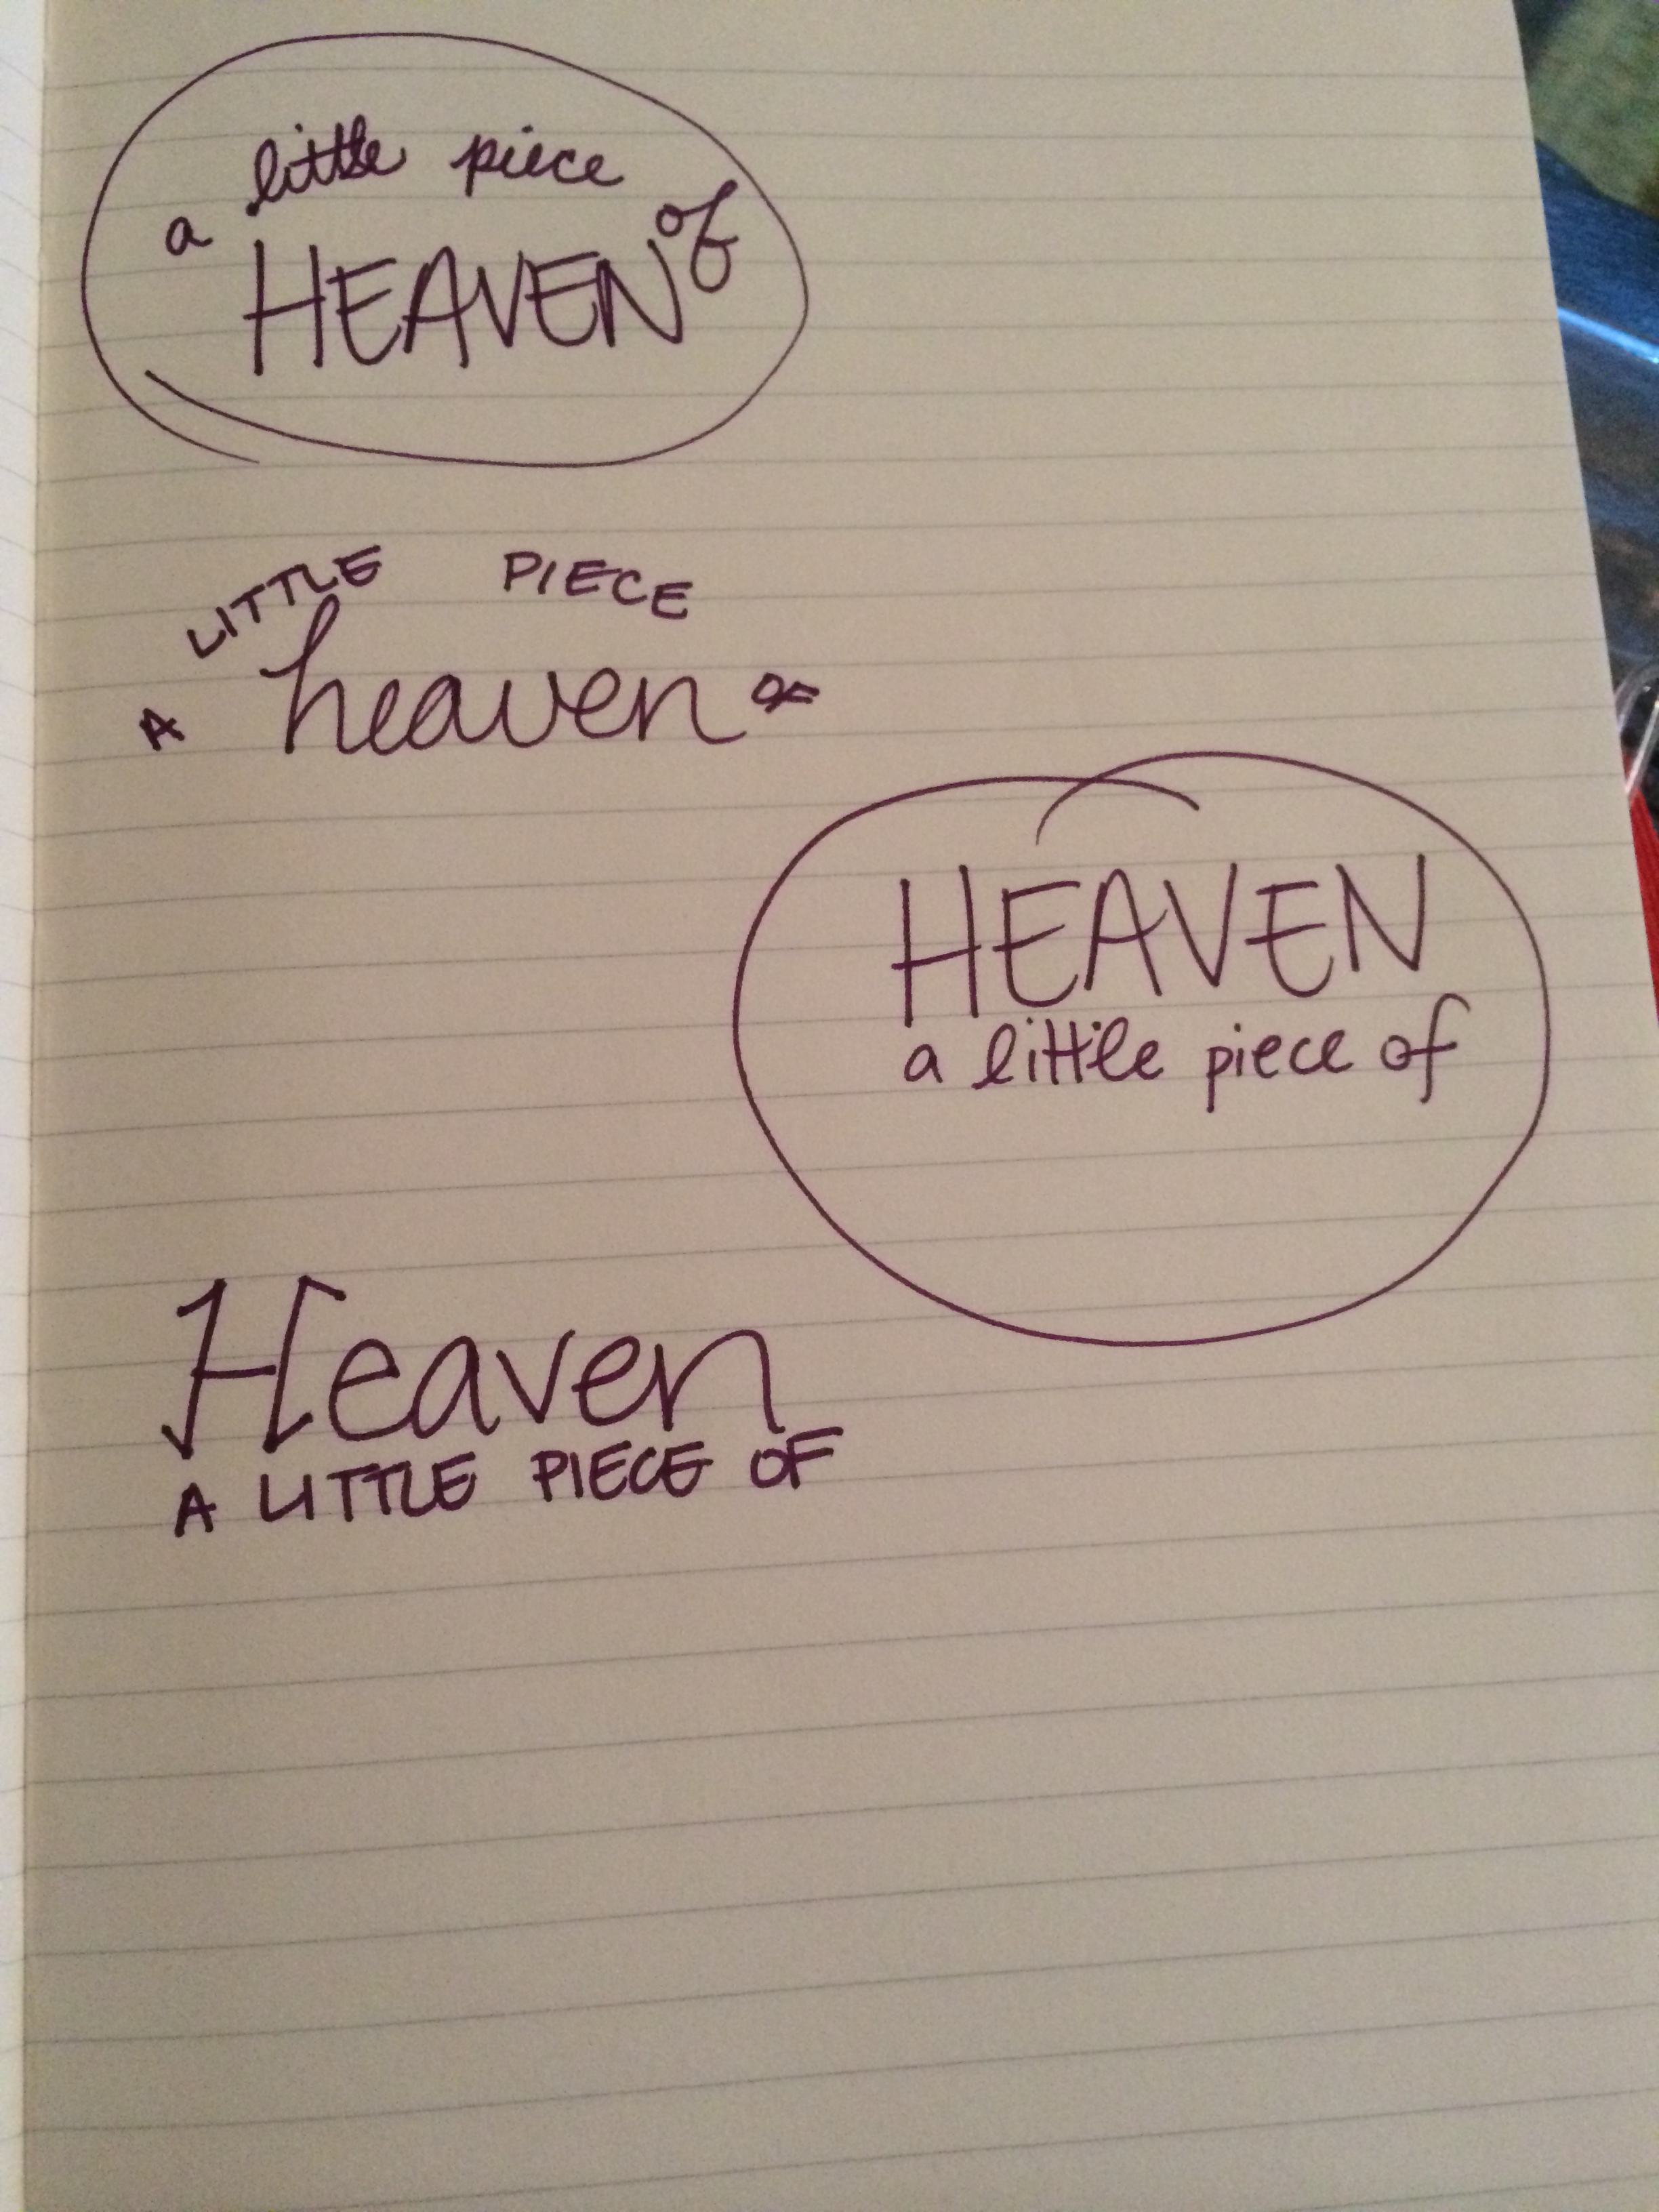 a little piece of
HEAVEN
A LITTLE PIECE OF
heaven
HEAVEN
a little piece of
Heaven
A LITTLE PIECE OF